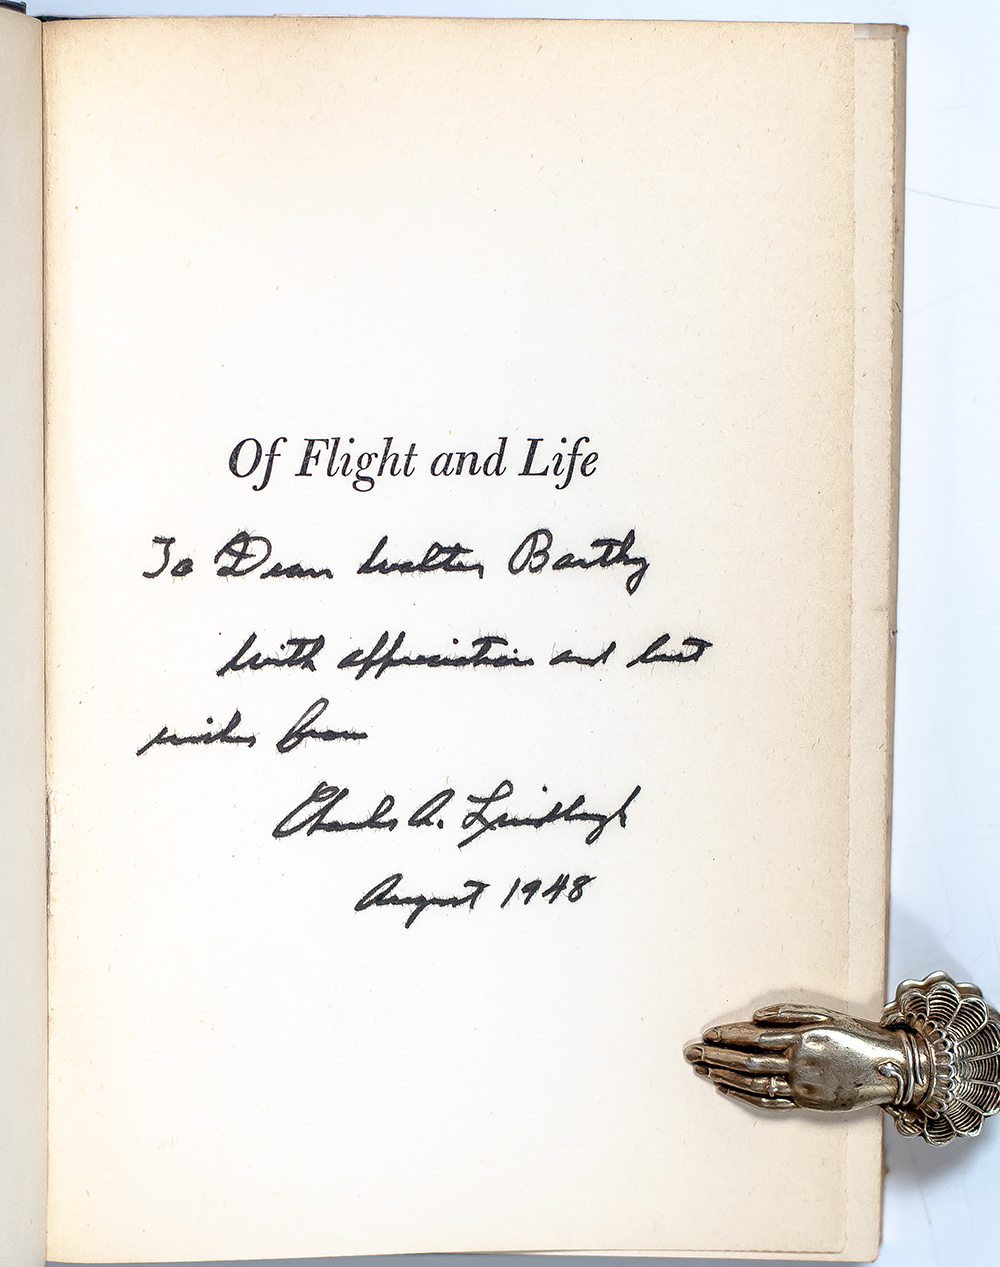 Of Flight and Life
To Dean Walter Barthy
with appreciation and best
wishes from
Charles A. Lindbergh
August 1948